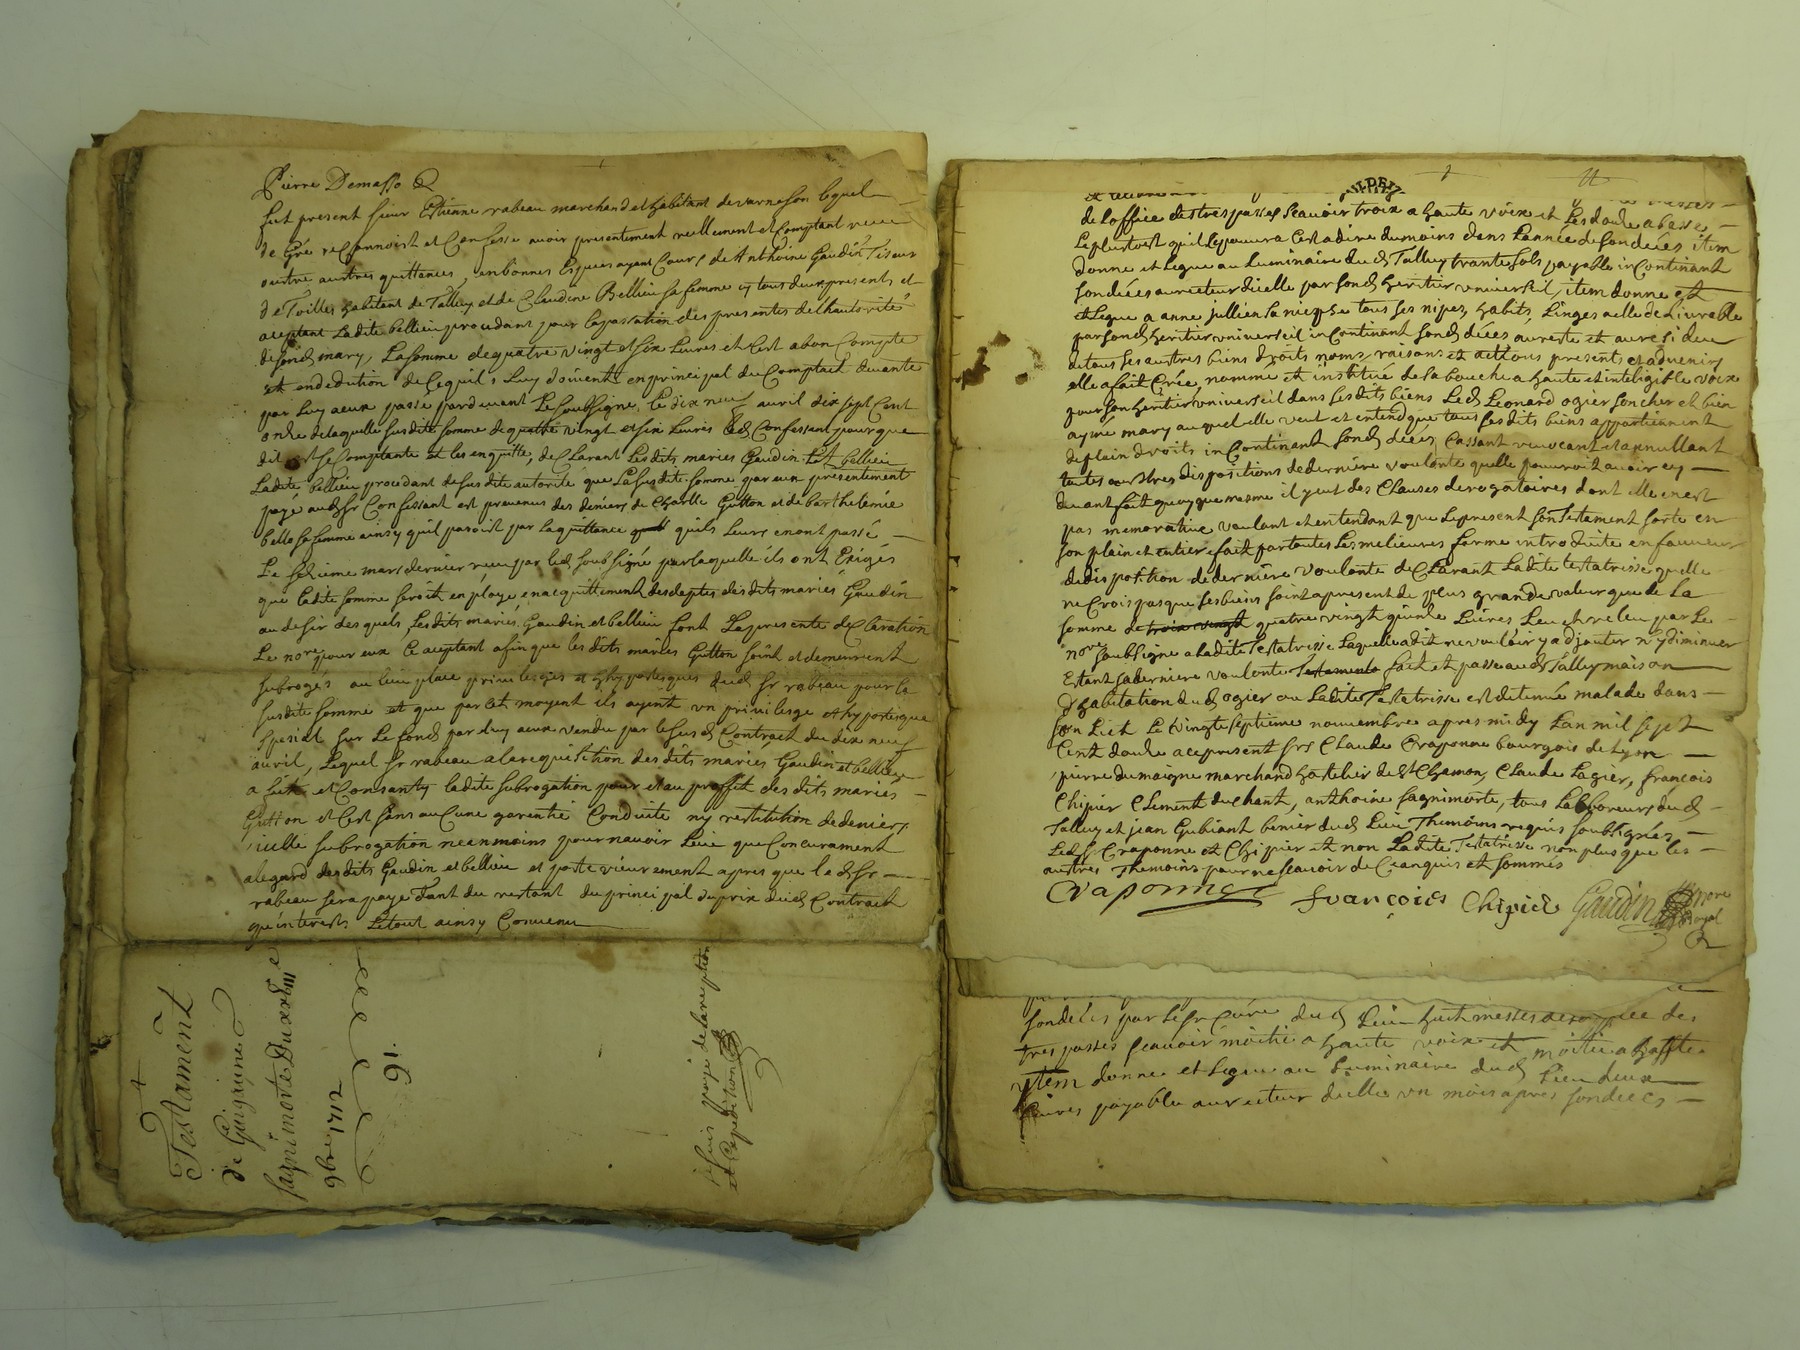 Pierre Demasso
fut present sieur Estienne rabeau marchand et habitant de varnason lequel
de Gré reconnoist et Confesse avoir presentement reellement et comptant receu
outre austres quittances en bonnes Especes ayant Cours de Anthoine Gaudin Tiseur
de Toilles habitant de Talluy et de Claudine Bellieu sa femme cy tous deux presents et
aceptant Ladite bellieu procedant pour la passation des presentes de lhautorité
de sond mary, La somme de quatre vingt et six Livres et Cest a bon Compte
et en dedution de Ce quils Luy doivent en principal du Comptract de vante
par Luy a eux passé pardevant Le soubsigne, le dix neuf avril dix sept Cent
onze de laquelle susdite somme de quatre vingt et six Livres led Confessant pour que
dit est se Comptante et les enquitte, deClarant Lesdits mariés Gaudin et bellieu
Ladite bellieu procedant de susdite autorité que La susdite somme par eux presentement
payé aud Sr Confessant est provenus des deniers de Charlle Gutton et de barthelemie
belle sa femme ainsy quil paroist par la quittance quils Leurs en ont passé
Le seizieme mars dernier receu par led soubsigné par laquelle ils ont Exigés
que Ladite somme seroit employé en acquittement des deptes des dits mariés Gaudin
au desir des quels, Lesdits mariés Gaudin et bellieu font La presente deClaration
Le nore pour eux Ce aceptant afin que les dits mariés Gutton soint et demeurent
subrogés au lieu place privileges et hypoteques dud sr rabeau pour la
susdite somme et que par cet moyent ils ayent un privilesge et hypotesque
spesial sur Le fond par luy a eux vendu par le susd Contract du dix neuf
avril, Lequel sr rabeau a la requisition des dits mariés Gaudin et bellieu
a fait et Consanty ladite subrogation pour et au proffit des dits mariés
Gutton et Cest sans auCune garentie Conduite ny restitution de deniers
icelle subrogation neanmoins pour navoir Lieu que Concurament
alegard desdits Gaudin et bellieu et posterieurement apres que led Sr
rabeau sera payé Tant du restant du principal du prix dud Contract
qu'interests Letout ainsy Convenu
Testament
de Guigainne
sagnimorte Du xxvii e
9bre 1712
91.
Je suis payé de la reception
et Expedition
de Loffice des trespassés sCavoir troix a haute voix et Les douze a basse
Le plustost quil Le pourra Cest a dire du moins dans Lannée de son déces item
donne et Legue au Luminaire dud Talluy trante sols payable inContinant
son décés au recteur dicelle par sond heritier universeil, item donne et
et Legue a anne jullien sa niepse tous ses nipes, habits, Linges a elle de Livrable
par sond heritier universeil inContinant sond décés au reste et au resideu
de tous ses austres biens droits noms raisons et actions present et advenirs
elle a fait Crée, nommé et institué de sa bouche a haute et inteligible voix
pour son heritier universeil dans ses dits biens Led Leonard ogier son cher et bien
aymé mary auquel elle veut et entend que tous ses dits biens appartienent
de plain droits inContinant sond décés Cassant revocant et annullant
toutes austres dispositions de derniere voulonté quelle pouvroit avoir cy
devant fait quoy que mesme il y eut des Clauses derogatoires dont elle n est
pas memorative voulant et entendant que Le present son Testament sorte en
son plain et entier efait par toutes Les melieures forme introduite en faveur
de disposition de derniere voulonté deClarant Ladite testatrisse quelle
ne Crois pas que ses biens soint a present de plus grande valeur que de La
somme de troix vingt quatre vingt quinze Livres Leu et releu par Le
nore soubsigne a Ladite Testatrisse Laquelle a dit ne vouloir y adjouter ny diminuer
Estant sa derniere voulonté Testamento fait et passé aud Talluy maison
d'habitation dud ogier ou Ladite Testatrisse est detenue malade dans
son Lict Le vingt septieme nouvembre apres midy Lan mil sept
Cent douze a ce present Srs Claude Craponne bourgois de Lyon
pierre dumaigne marchand hostelier de St Chamon, Claude Lagier, françois
Chipier Clement duchant, anthoine sagnimorte, tous Labboreurs dud
Talluy et jean Gubiant benier dud Lieu Themoins requis soubsignés
Led Sr Craponne et Chipier et non Ladite Testatrisse non plus que les
austres Themoins pour ne sCavoir de Ce anquis et sommés
Craponne françois Chipier Gaudin nore royal
son décés par Le Sr Curé dud Lieu huit messes de loffice des
trespassés sCavoir moitié a haute voix et moitié a basse
ytem donne et Legue au Luminaire dud Lieu deux
Livres payable au recteur dicelle un mois apres son déces